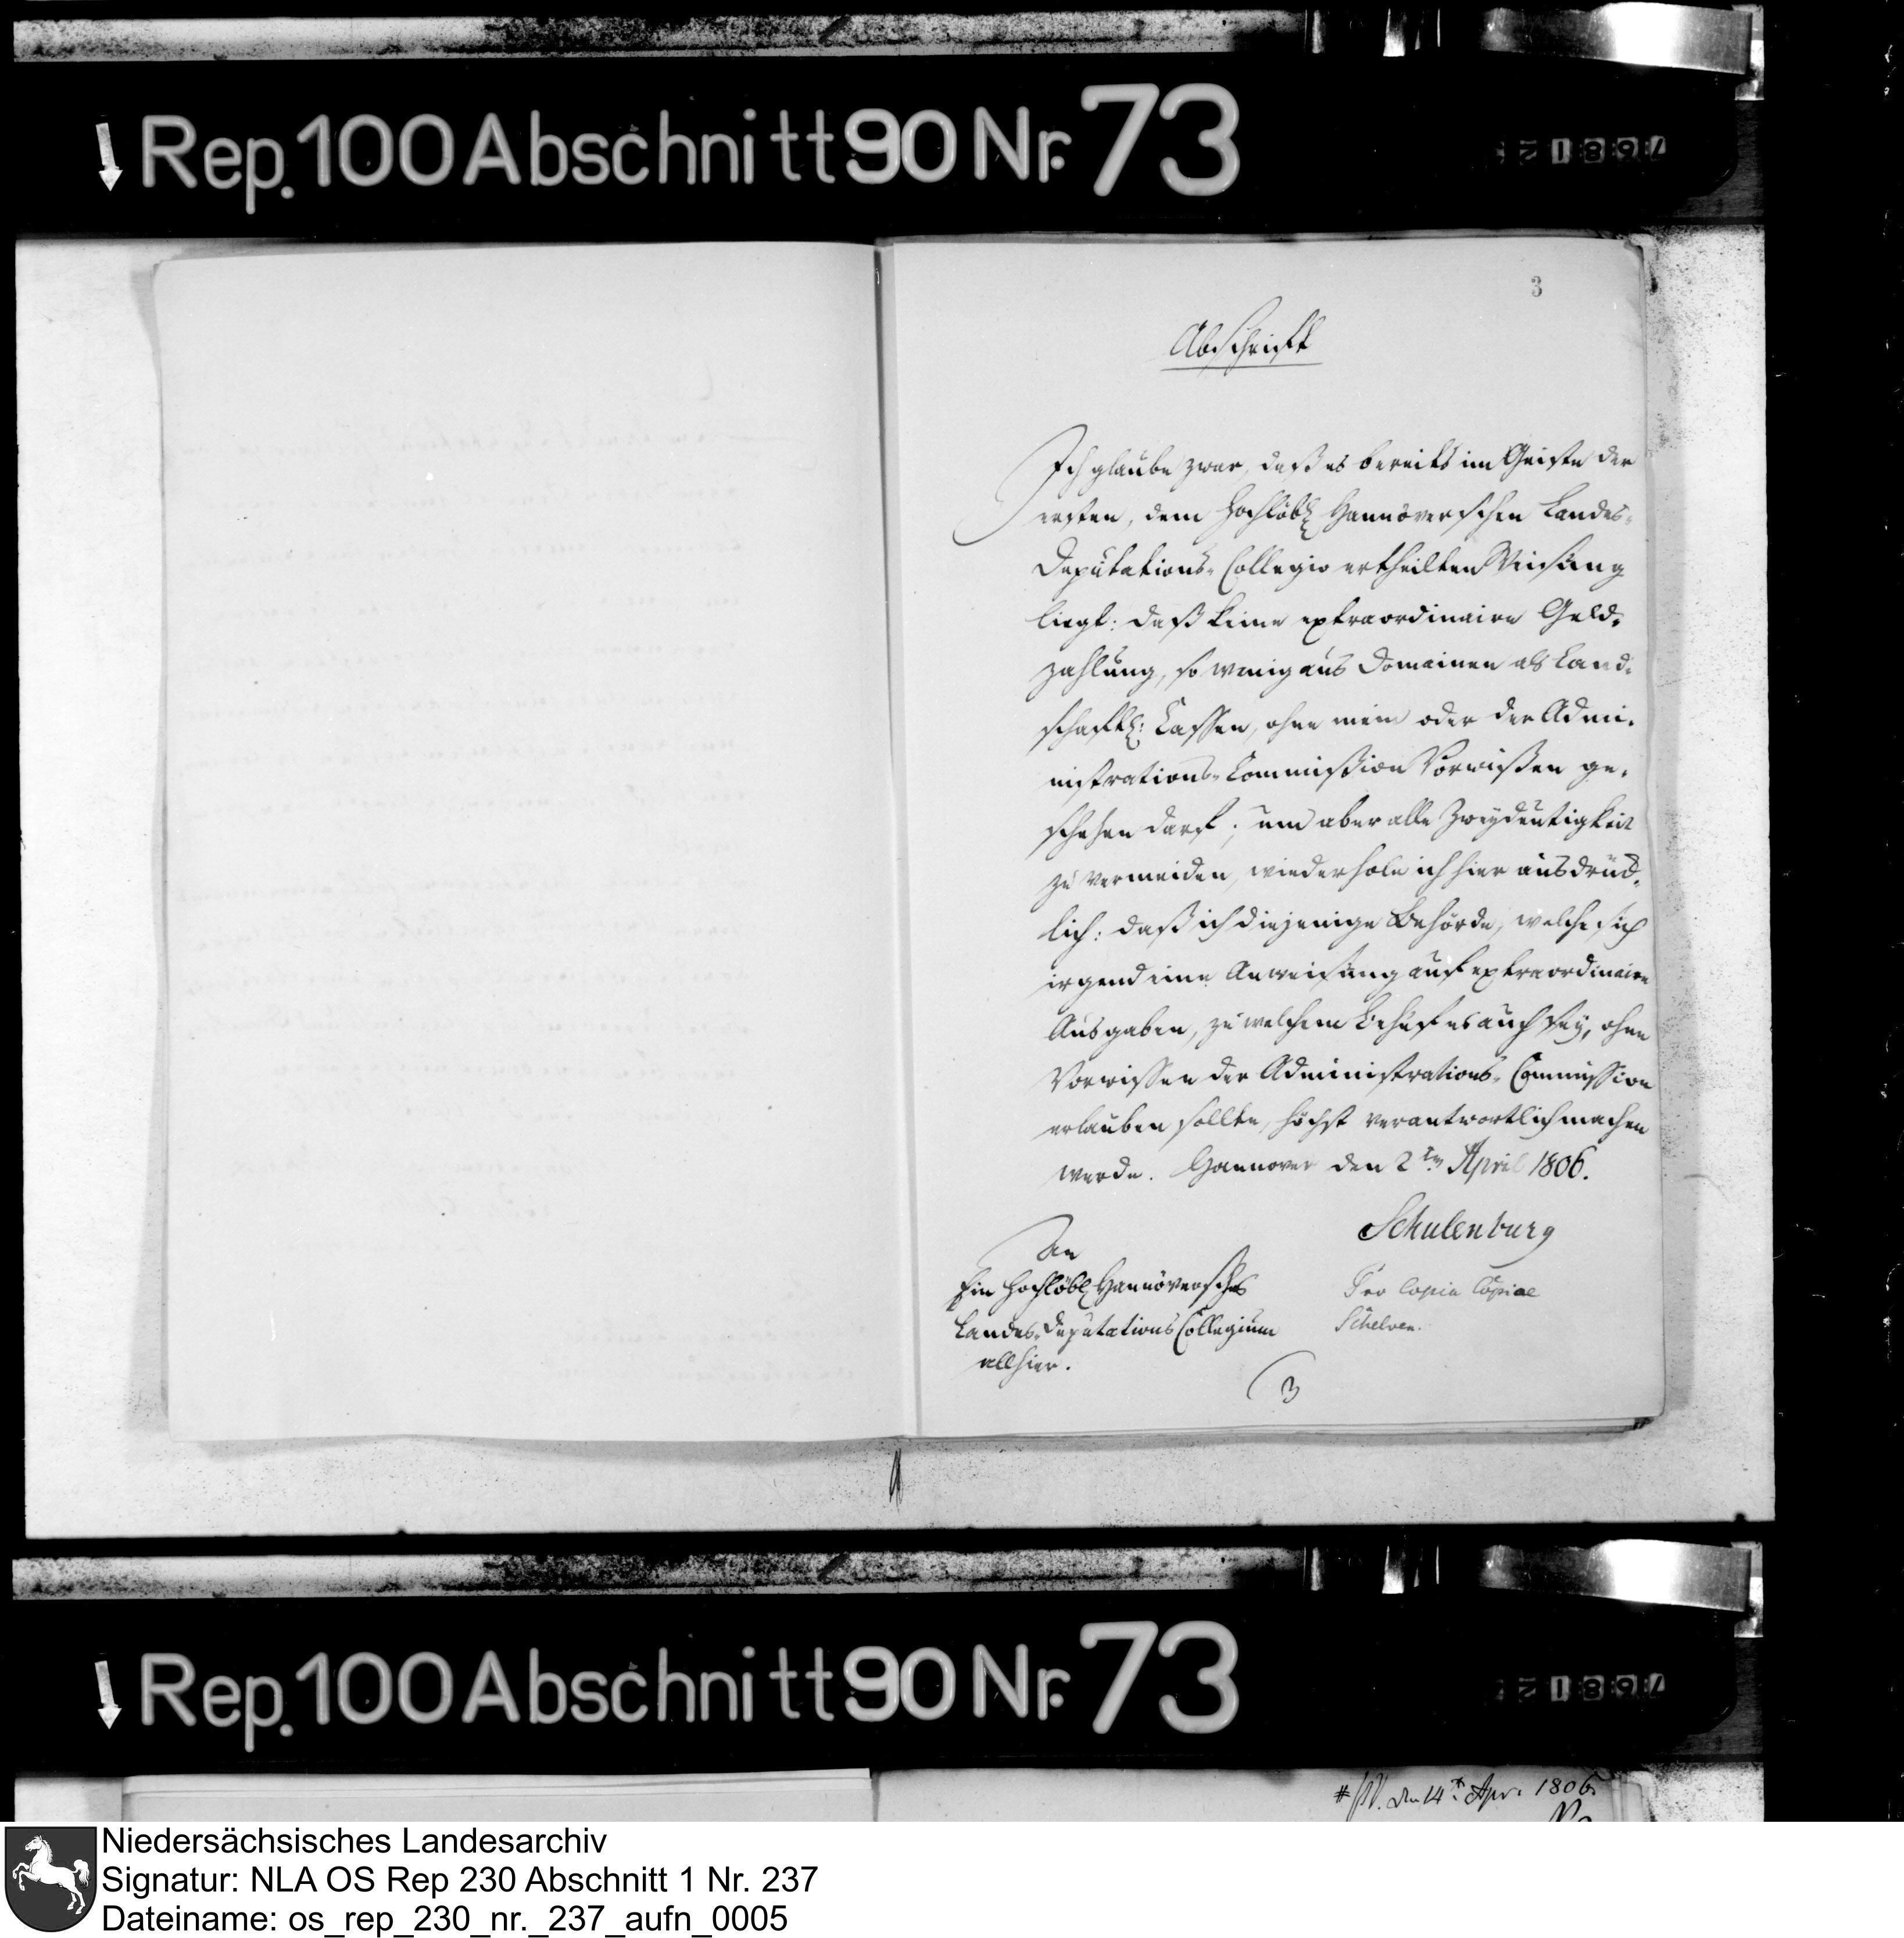 Rep. 100 Abschnitt 90 Nr. 73
3
Abschrift
Ich glaube zwar, daß es bereits im Geiste der
ersten, dem Hochlöbl. Hannöverschen Landes-
Deputations-Collegio ertheilten Weisung
liegt: daß keine extraordinaire Geld-
zahlung, so wenig aus Domainen als Land-
schaftl: Cassen, ohne mein oder der Admi-
nistrations-Commißion Vorwißen ge-
schehen darf; um aber alle Zweydeutigkeit
zu vermeiden, wiederhole ich hier ausdrück-
lich: daß ich diejenige Behörde, welche sich
irgend eine Anweisung auf extraordinaire
Ausgaben, zu welchem Behuf es auch sey, ohne
Vorwissen der Administrations-Commission
erlauben sollte, höchst verantwortlich machen
werde. Hannover den 2ten April 1806.
Schulenburg
An
Ein Hochlöbl. Hannöversches
Landes-Deputations Collegium
allhier.
Pro Copia Copiae
Schelven.
3
Rep. 100 Abschnitt 90 Nr. 73
den 14t Apr. 1806.
Niedersächsisches Landesarchiv
Signatur: NLA OS Rep 230 Abschnitt 1 Nr. 237
Dateiname: os_rep_230_nr._237_aufn_0005